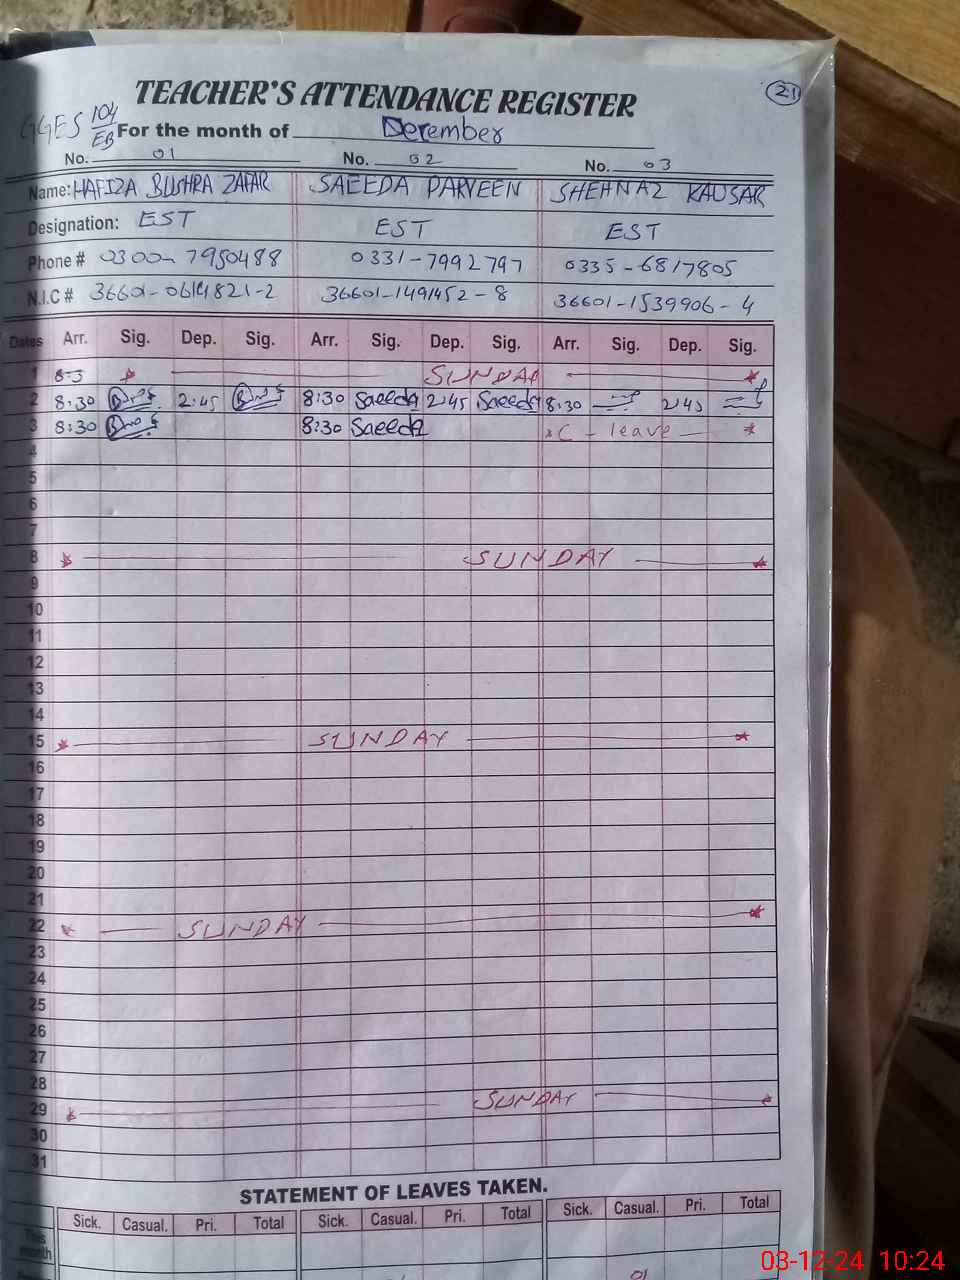 21
TEACHER'S ATTENDANCE REGISTER
GGES 104/EB For the month of December
No. 01 No. 02 No. 03
Name: HAFIZA BUSHRA ZAFAR SAEEDA PARVEEN SHEHNAZ KAUSAR
Designation: EST EST EST
Phone # 0300-7950488 0331-7992797 0335-6817805
N.I.C # 36601-0614821-2 36601-1491452-8 36601-1539906-4
Dates Arr. Sig. Dep. Sig. Arr. Sig. Dep. Sig. Arr. Sig. Dep. Sig.
1 8-3 SUNDAY
2 8:30 2:45 8:30 Saeeda 2:45 Saeeda 8:30 2:45
3 8:30 8:30 Saeeda C - leave
4
5
6
7
8 SUNDAY
9
10
11
12
13
14
15 SUNDAY
16
17
18
19
20
21
22 SUNDAY
23
24
25
26
27
28
29 SUNDAY
30
31
STATEMENT OF LEAVES TAKEN.
Sick. Casual. Pri. Total Sick. Casual. Pri. Total Sick. Casual. Pri. Total
This month
01
03-12-24 10:24